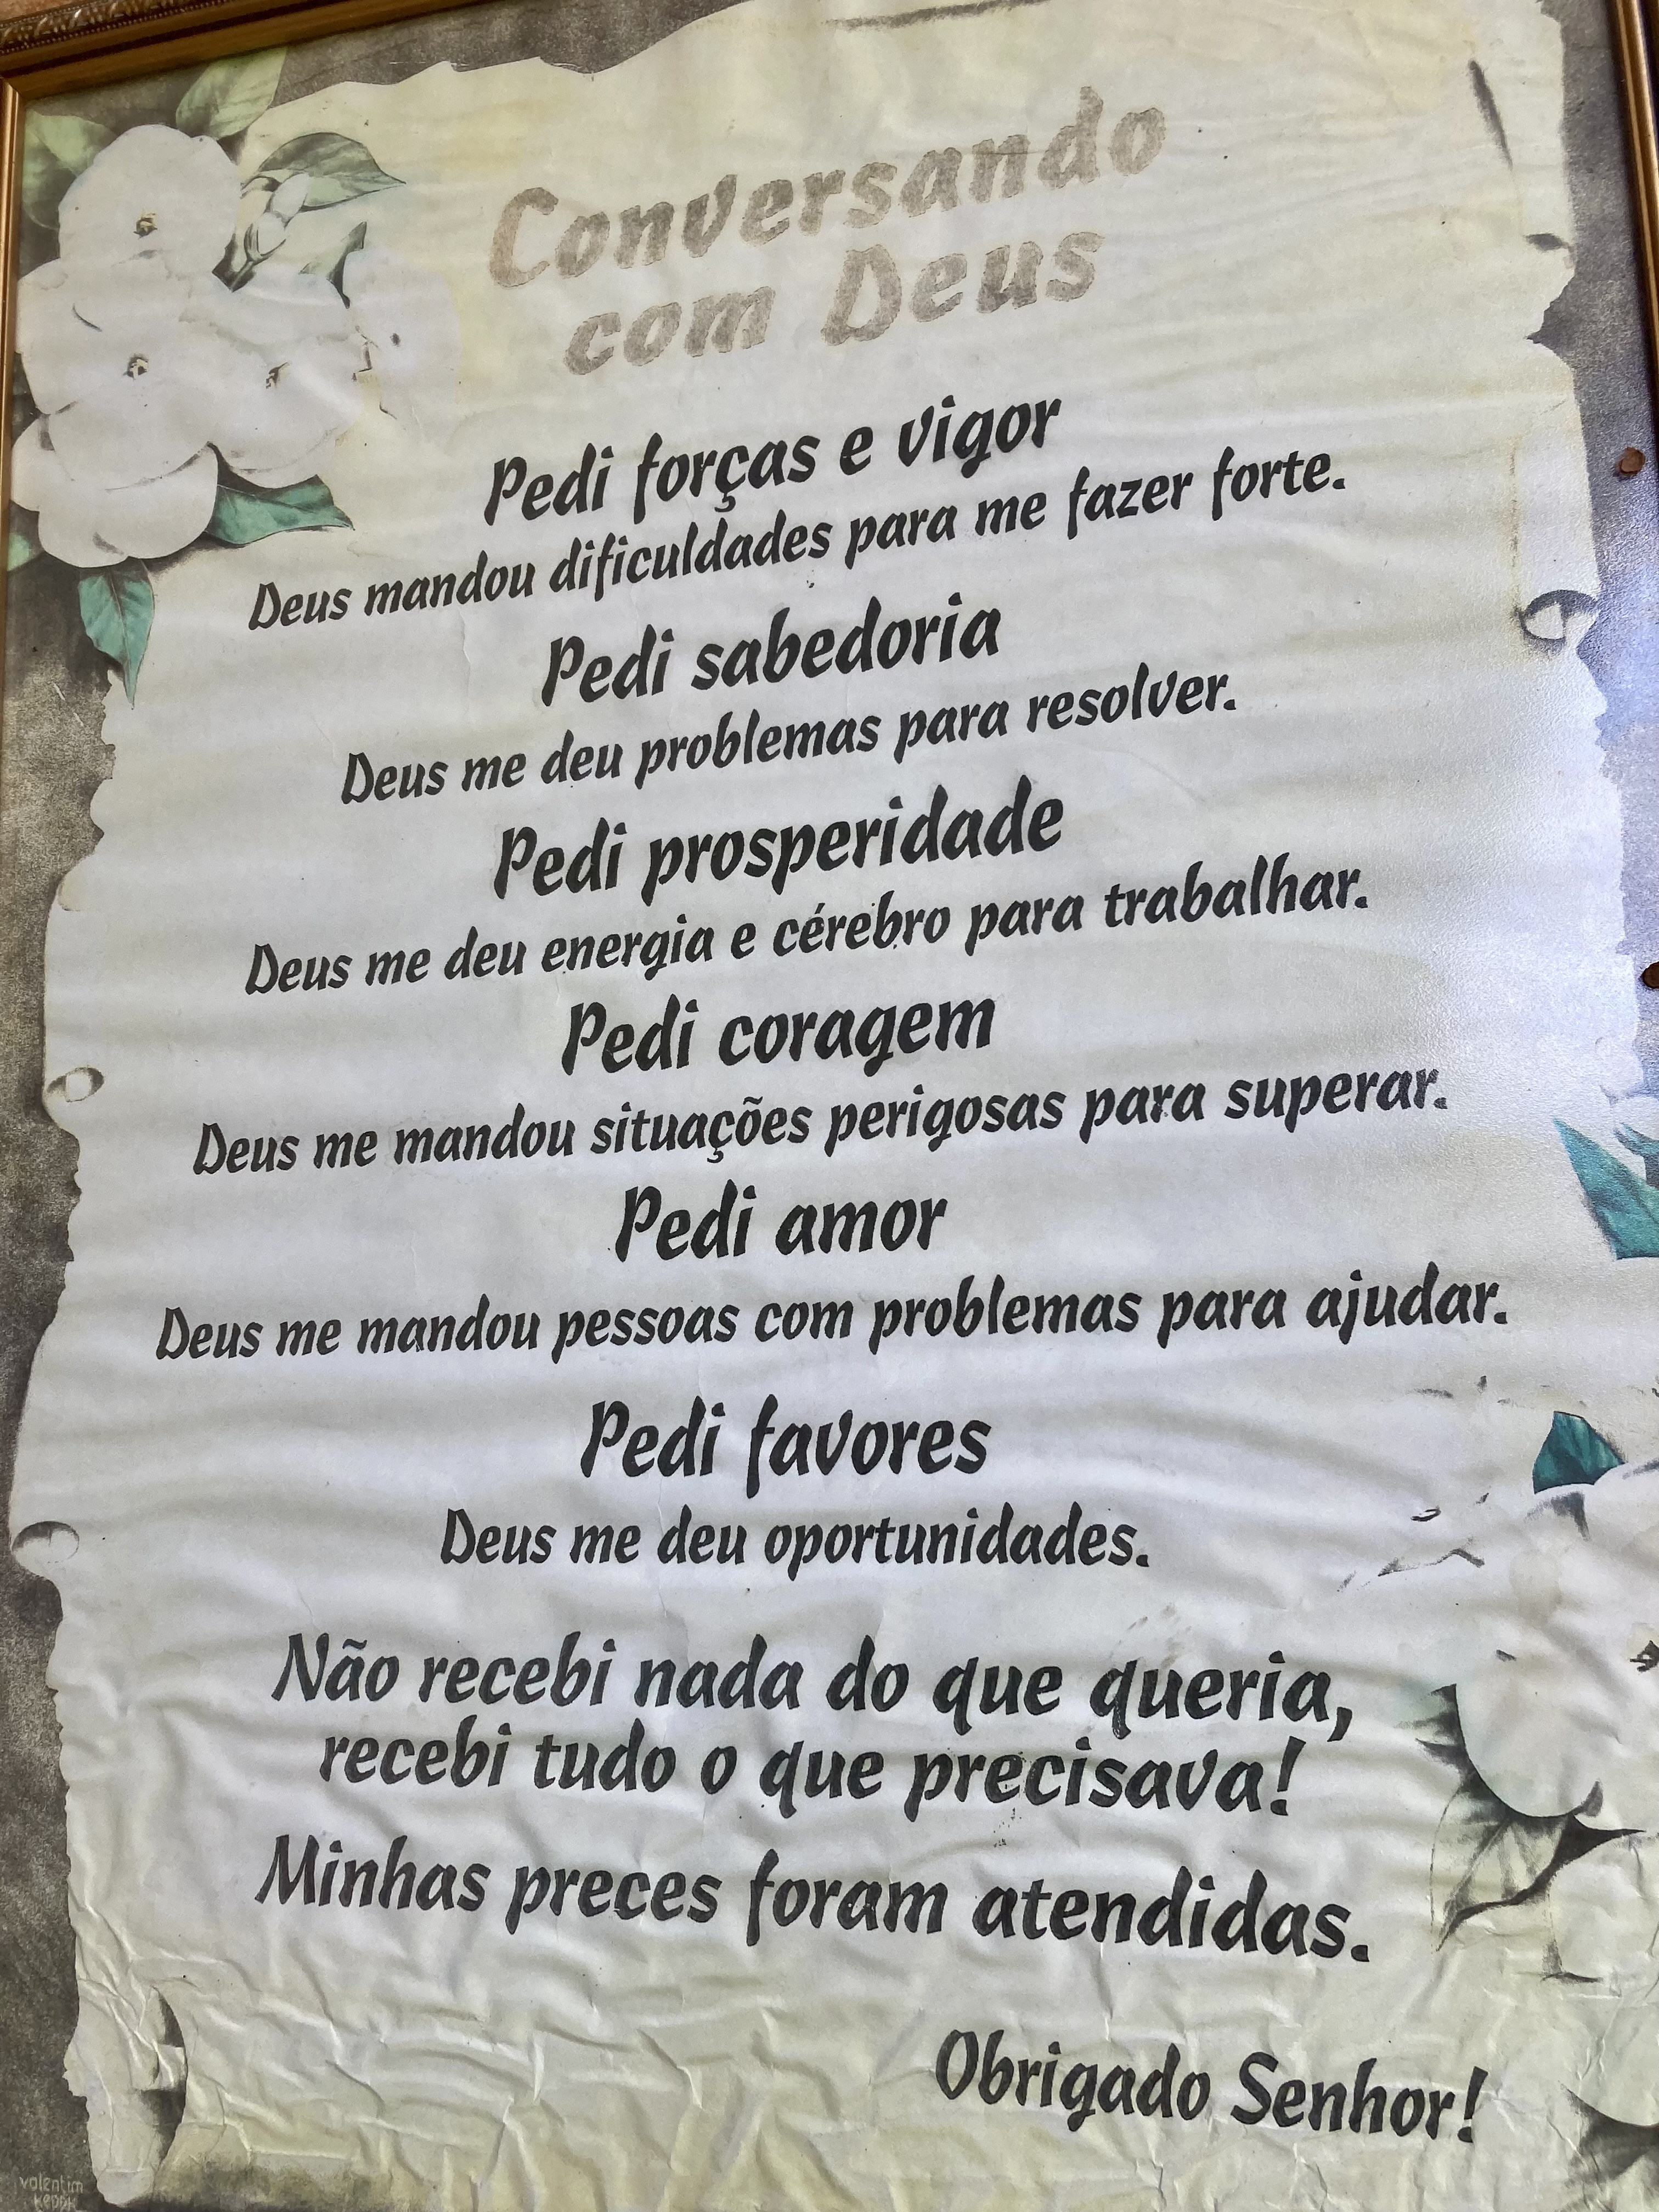 Conversando
com Deus
Pedi forças e vigor
Deus mandou dificuldades para me fazer forte.
Pedi sabedoria
Deus me deu problemas para resolver.
Pedi prosperidade
Deus me deu energia e cérebro para trabalhar.
Pedi coragem
Deus me mandou situações perigosas para superar.
Pedi amor
Deus me mandou pessoas com problemas para ajudar.
Pedi favores
Deus me deu oportunidades.
Não recebi nada do que queria,
recebi tudo o que precisava!
Minhas preces foram atendidas.
Obrigado Senhor!
valentim